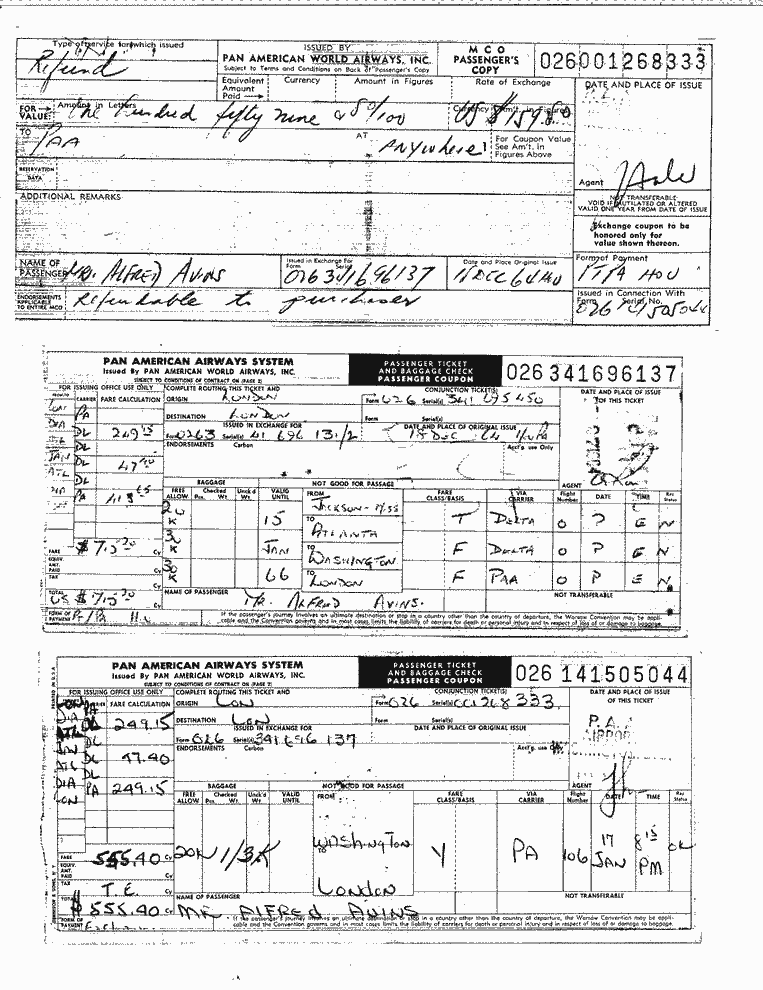 Type of service for which issued
Refund
ISSUED BY
PAN AMERICAN WORLD AIRWAYS, INC.
Subject to Terms and Conditions on Back of Passenger's Copy
M C O
PASSENGER'S
COPY
026001268333
Equivalent Amount Paid
Currency
Amount in Figures
Rate of Exchange
DATE AND PLACE OF ISSUE
FOR VALUE:
Amount in Letters
One Hundred fifty nine & 80/100
US $159.80
TO
PAA
AT
Anywhere
For Coupon Value
See Am't. in
Figures Above
RESERVATION DATA
Agent
NOT TRANSFERABLE
VOID IF MUTILATED OR ALTERED
VALID ONE YEAR FROM DATE OF ISSUE
ADDITIONAL REMARKS
Exchange coupon to be
honored only for
value shown thereon.
NAME OF PASSENGER
MR. ALFRED AVINS
Issued in Exchange For
Form Serial
026 341696137
Date and Place Original Issue
15 DEC 64 HOU
Form of Payment
PTPA HOU
ENDORSEMENTS APPLICABLE TO ENTIRE MCO
Refundable to purchaser
Issued in Connection With
Form Serial No.
026 141505044
PAN AMERICAN AIRWAYS SYSTEM
Issued By PAN AMERICAN WORLD AIRWAYS, INC.
SUBJECT TO CONDITIONS OF CONTRACT ON (PAGE 2)
PASSENGER TICKET
AND BAGGAGE CHECK
PASSENGER COUPON
026 341696137
FOR ISSUING OFFICE USE ONLY
COMPLETE ROUTING THIS TICKET AND
CONJUNCTION TICKET(S)
DATE AND PLACE OF ISSUE
OF THIS TICKET
CARRIER
FARE CALCULATION
ORIGIN
LONDON
Form 026 Serial(s) 341 695450
DESTINATION
LONDON
Form Serial(s)
ISSUED IN EXCHANGE FOR
DATE AND PLACE OF ORIGINAL ISSUE
ENDORSEMENTS Carbon
Acct'g. use Only
249.15
47.40
AGENT
BAGGAGE
NOT GOOD FOR PASSAGE
FREE ALLOW
Checked Pcs. Wt.
Unck'd Wt.
VALID UNTIL
FROM
FARE CLASS/BASIS
VIA CARRIER
Flight Number
DATE
TIME
Res Status
JACKSON-MISS
15 TO ATLANTA T DELTA O P E N
JAN TO WASHINGTON F DELTA O P E N
66 TO LONDON F PAA O P E N
FARE
EQUIV. AMT. PAID
TAX
TOTAL
NAME OF PASSENGER
MR. ALFRED AVINS.
NOT TRANSFERABLE
FORM OF PAYMENT
If the passenger's journey involves an ultimate destination or stop in a country other than the country of departure, the Warsaw Convention may be applicable and the Convention governs and in most cases limits the liability of carriers for death or personal injury and in respect of loss of or damage to baggage.
PAN AMERICAN AIRWAYS SYSTEM
Issued By PAN AMERICAN WORLD AIRWAYS, INC.
SUBJECT TO CONDITIONS OF CONTRACT ON (PAGE 2)
PASSENGER TICKET
AND BAGGAGE CHECK
PASSENGER COUPON
026 141505044
FOR ISSUING OFFICE USE ONLY
COMPLETE ROUTING THIS TICKET AND
CONJUNCTION TICKET(S)
DATE AND PLACE OF ISSUE
OF THIS TICKET
FARE CALCULATION
ORIGIN
LON
Form 026 Serial(s) 001268333
LON PA
DIA DL 249.15
ATL DL
JAN DL 47.40
ATL DL
DIA PA 249.15
LON
DESTINATION
LON
Form Serial(s)
ISSUED IN EXCHANGE FOR
DATE AND PLACE OF ORIGINAL ISSUE
Form 026 Serial(s) 341696137
ENDORSEMENTS Carbon
Acct'g. use Only
P. A.
AGENT
BAGGAGE
NOT GOOD FOR PASSAGE
FREE ALLOW
Checked Pcs. Wt.
Unck'd Wt.
VALID UNTIL
FROM
FARE CLASS/BASIS
VIA CARRIER
Flight Number
DATE
TIME
Res Status
20K 1/3K
WASHINGTON
TO LONDON
Y PA 106 17 JAN 8 15 PM OK
FARE
555.40
EQUIV. AMT. PAID
TAX
T.E.
TOTAL
$555.40
NAME OF PASSENGER
MR ALFRED AVINS
NOT TRANSFERABLE
FORM OF PAYMENT
If the passenger's journey involves an ultimate destination or stop in a country other than the country of departure, the Warsaw Convention may be applicable and the Convention governs and in most cases limits the liability of carriers for death or personal injury and in respect of loss of or damage to baggage.